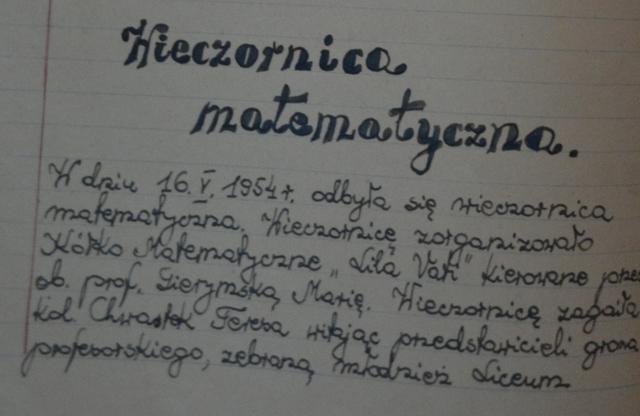 Wieczornica
matematyczna.
W dniu 16.V.1954r. odbyła się wieczornica
matematyczna. Wieczornicę zorganizowało
Kółko Matematyczne „Lila Vati" kierowane przez
ob. prof. Gierymską Marię. Wieczornicę zagaiła
kol. Chwastek Teresa witając przedstawicieli grona
profesorskiego, zebraną młodzież Liceum